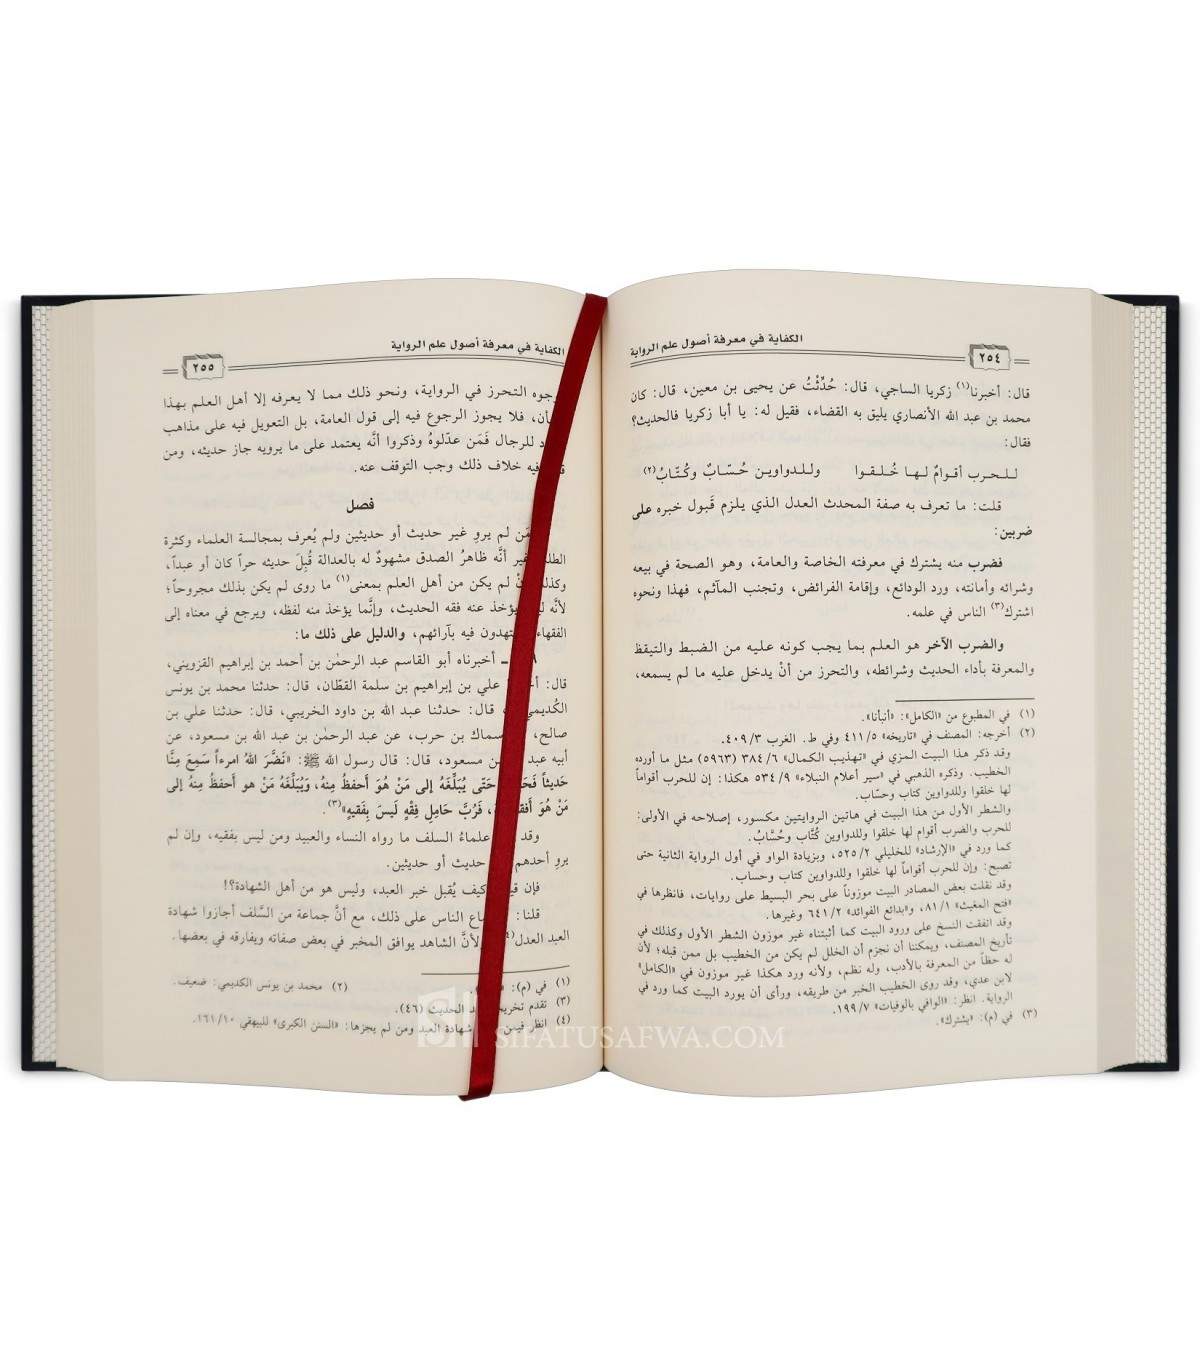 الكفاية في معرفة أصول علم الرواية
٢٥٤
قال: أخبرنا(١) زكريا الساجي، قال: حُدِّثْتُ عن يحيى بن معين، قال: كان
محمد بن عبد الله الأنصاري يليق به القضاء، فقيل له: يا أبا زكريا فالحديث؟
فقال:
للـحـرب أقـوامٌ لـهـا خُـلـقـوا وللـدواويـن حُـسّـابٌ وكُـتّـابُ(٢)
قلت: ما تعرف به صفة المحدث العدل الذي يلزم قَبول خبره على
ضربين:
فضرب منه يشترك في معرفته الخاصة والعامة، وهو الصحة في بيعه
وشرائه وأمانته، ورد الودائع، وإقامة الفرائض، وتجنب المآثم، فهذا ونحوه
اشترك(٣) الناس في علمه.
والضرب الآخر هو العلم بما يجب كونه عليه من الضبط والتيقظ
والمعرفة بأداء الحديث وشرائطه، والتحرز من أنْ يدخل عليه ما لم يسمعه،
(١) في المطبوع من «الكامل»: «أنبأنا».
(٢) أخرجه: المصنف في «تاريخه» ٤١١/٥ وفي ط. الغرب ٤٠٩/٣.
وقد ذكر هذا البيت المزي في «تهذيب الكمال» ٣٨٤/٦ (٥٩٦٣) مثل ما أورده
الخطيب. وذكره الذهبي في «سير أعلام النبلاء» ٥٣٤/٩ هكذا: إن للحرب أقواماً
لها خلقوا وللدواوين كتاب وحسّاب.
والشطر الأول من هذا البيت في هاتين الروايتين مكسور، إصلاحه في الأولى:
للحرب والضرب أقوام لها خلقوا وللدواوين كُتَّاب وحُسَّابُ.
كما ورد في «الإرشاد» للخليلي ٥٢٥/٢، وبزيادة الواو في أول الرواية الثانية حتى
تصبح: وإن للحرب أقواماً لها خلقوا وللدواوين كتاب وحساب.
وقد نقلت بعض المصادر البيت موزوناً على بحر البسيط على روايات، فانظرها في
«فتح المغيث» ٨١/١، و«بدائع الفوائد» ٦٤١/٢ وغيرها.
وقد اتفقت النسخ على ورود البيت كما أثبتناه غير موزون الشطر الأول وكذلك في
تأريخ المصنف، ويمكننا أن نجزم أن الخلل لم يكن من الخطيب بل ممن قبله؛ لأن
له حظاً من المعرفة بالأدب، وله نظم، ولأنه ورد هكذا غير موزون في «الكامل»
لابن عدي، وقد روى الخطيب الخبر من طريقه، ورأى أن يورد البيت كما ورد في
الرواية. انظر: «الوافي بالوفيات» ١٩٩/٧.
(٣) في (م): «يشترك».
الكفاية في معرفة أصول علم الرواية
٢٥٥
وجوه التحرز في الرواية، ونحو ذلك مما لا يعرفه إلا أهل العلم بهذا
فلا يجوز الرجوع فيه إلى قول العامة، بل التعويل فيه على مذاهب
للرجال فَمَن عدّلوهُ وذكروا أنَّه يعتمد على ما يرويه جاز حديثه، ومن
فيه خلاف ذلك وجب التوقف عنه.
فصل
مَن لم يروِ غير حديث أو حديثين ولم يُعرف بمجالسة العلماء وكثرة
غير أنَّه ظاهرُ الصدق مشهودٌ له بالعدالة قُبِلَ حديثه حراً كان أو عبداً،
لم يكن من أهل العلم بمعنى(١) ما روى لم يكن بذلك مجروحاً؛
لأنَّه يؤخذ عنه فقه الحديث، وإنَّما يؤخذ منه لفظه، ويرجع في معناه إلى
الفقهاء فيه بآرائهم، والدليل على ذلك ما:
أخبرناه أبو القاسم عبد الرحمٰن بن أحمد بن إبراهيم القزويني،
قال: علي بن إبراهيم بن سلمة القطّان، قال: حدثنا محمد بن يونس
قال: حدثنا عبد الله بن داود الخريبي، قال: حدثنا علي بن
صالح، سماك بن حرب، عن عبد الرحمٰن بن عبد الله بن مسعود، عن
أبيه عبد بن مسعود، قال: قال رسول الله ﷺ: «نَضَّرَ اللهُ امرءاً سَمِعَ مِنَّا
حَديثاً حَتى يُبَلِّغَهُ إلى مَنْ هُوَ أَحفظُ مِنهُ، وَيُبَلِّغَهُ مَنْ هو أَحفظُ مِنهُ إلى
مَنْ هُوَ فَرُبَّ حَامِلِ فِقْهٍ لَيسَ بِفَقيهٍ»(٣).
وقد علماءُ السلف ما رواه النساء والعبيد ومن ليس بفقيه، وإن لم
يروِ أحدهم حديث أو حديثين.
فإن كيف يُقبل خبر العبد، وليس هو من أهل الشهادة؟!
قلنا: الناس على ذلك، مع أنَّ جماعة من السَّلف أجازوا شهادة
العبد العدل ولأنَّ الشاهد يوافق المخبر في بعض صفاته ويفارقه في بعضها.
(١) في (م):
(٢) محمد بن يونس الكديمي: ضعيف.
(٣) تقدم تخريجه الحديث (٤٦).
(٤) انظر شهادة العبد ومن لم يجزها: «السنن الكبرى» للبيهقي ١٦١/١٠.
SIFATUSAFWA.COM